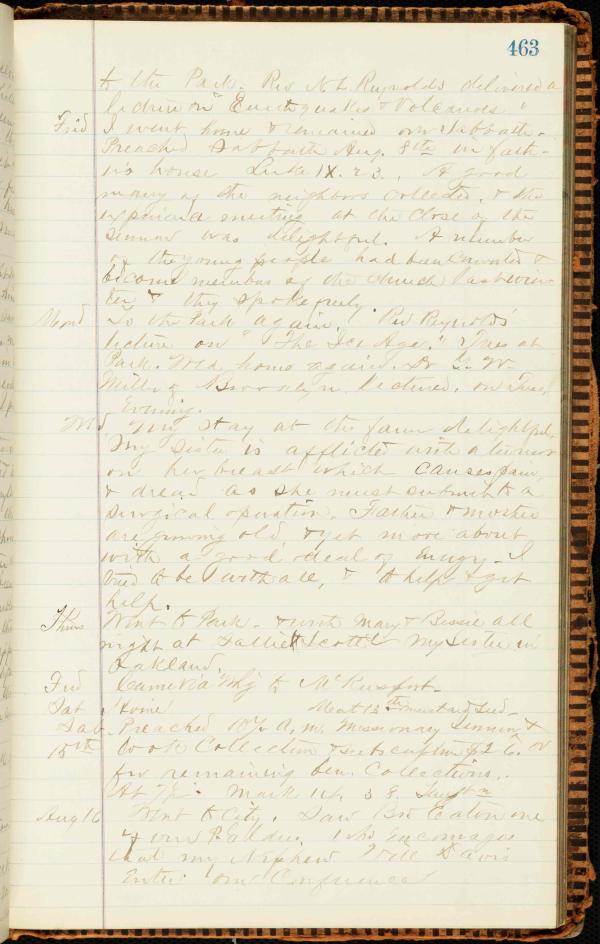 463
to the Park. Rev N L Reynolds delivered a
lecture on "Earthquakes & Volcanoes"
Frid I went home & remained over Sabbath.
Preached Sabbath Aug. 8th in fath-
er's house Luke IX. 23. A good
many of the neighbors collected. & the
experience meeting at the close of the
sermon was delightful. A number
of the young people had been converted &
become members of the church last win
ter & they spoke freely.
Mond To the Park again. Rev Reynolds'
lecture on "The Ice Age." Tues at
Park. Wed. home again. Dr W.
Mills of Brooklyn lectured, on Tues
Evening.
Wed My stay at the farm delightful.
My Sister is afflicted with a tumor
on her breast which causes pain,
& dread as she must submit to a
surgical operation. Father & mother
are growing old, & yet move about
with a good deal of energy. I
tried to be with all, & to help & get
help.
Thurs Went to Park. & with Mary & Bessie all
night at Sallie Scott's my sister in
Oakland.
Frid Came via to McKeesport.
Sat Home Meat 13 mustard seed
Sab. Preached 10½ A.m. Missionary Sermon &
15th took Collection & subscription $26. or
for remaining ben. Collections.
At 7½. Mark 14. 38
Aug 16 Went to City. Saw Bro Eaton one
of our P. Elders. who encourages
that my Nephew Will Davis
Enter our Conference